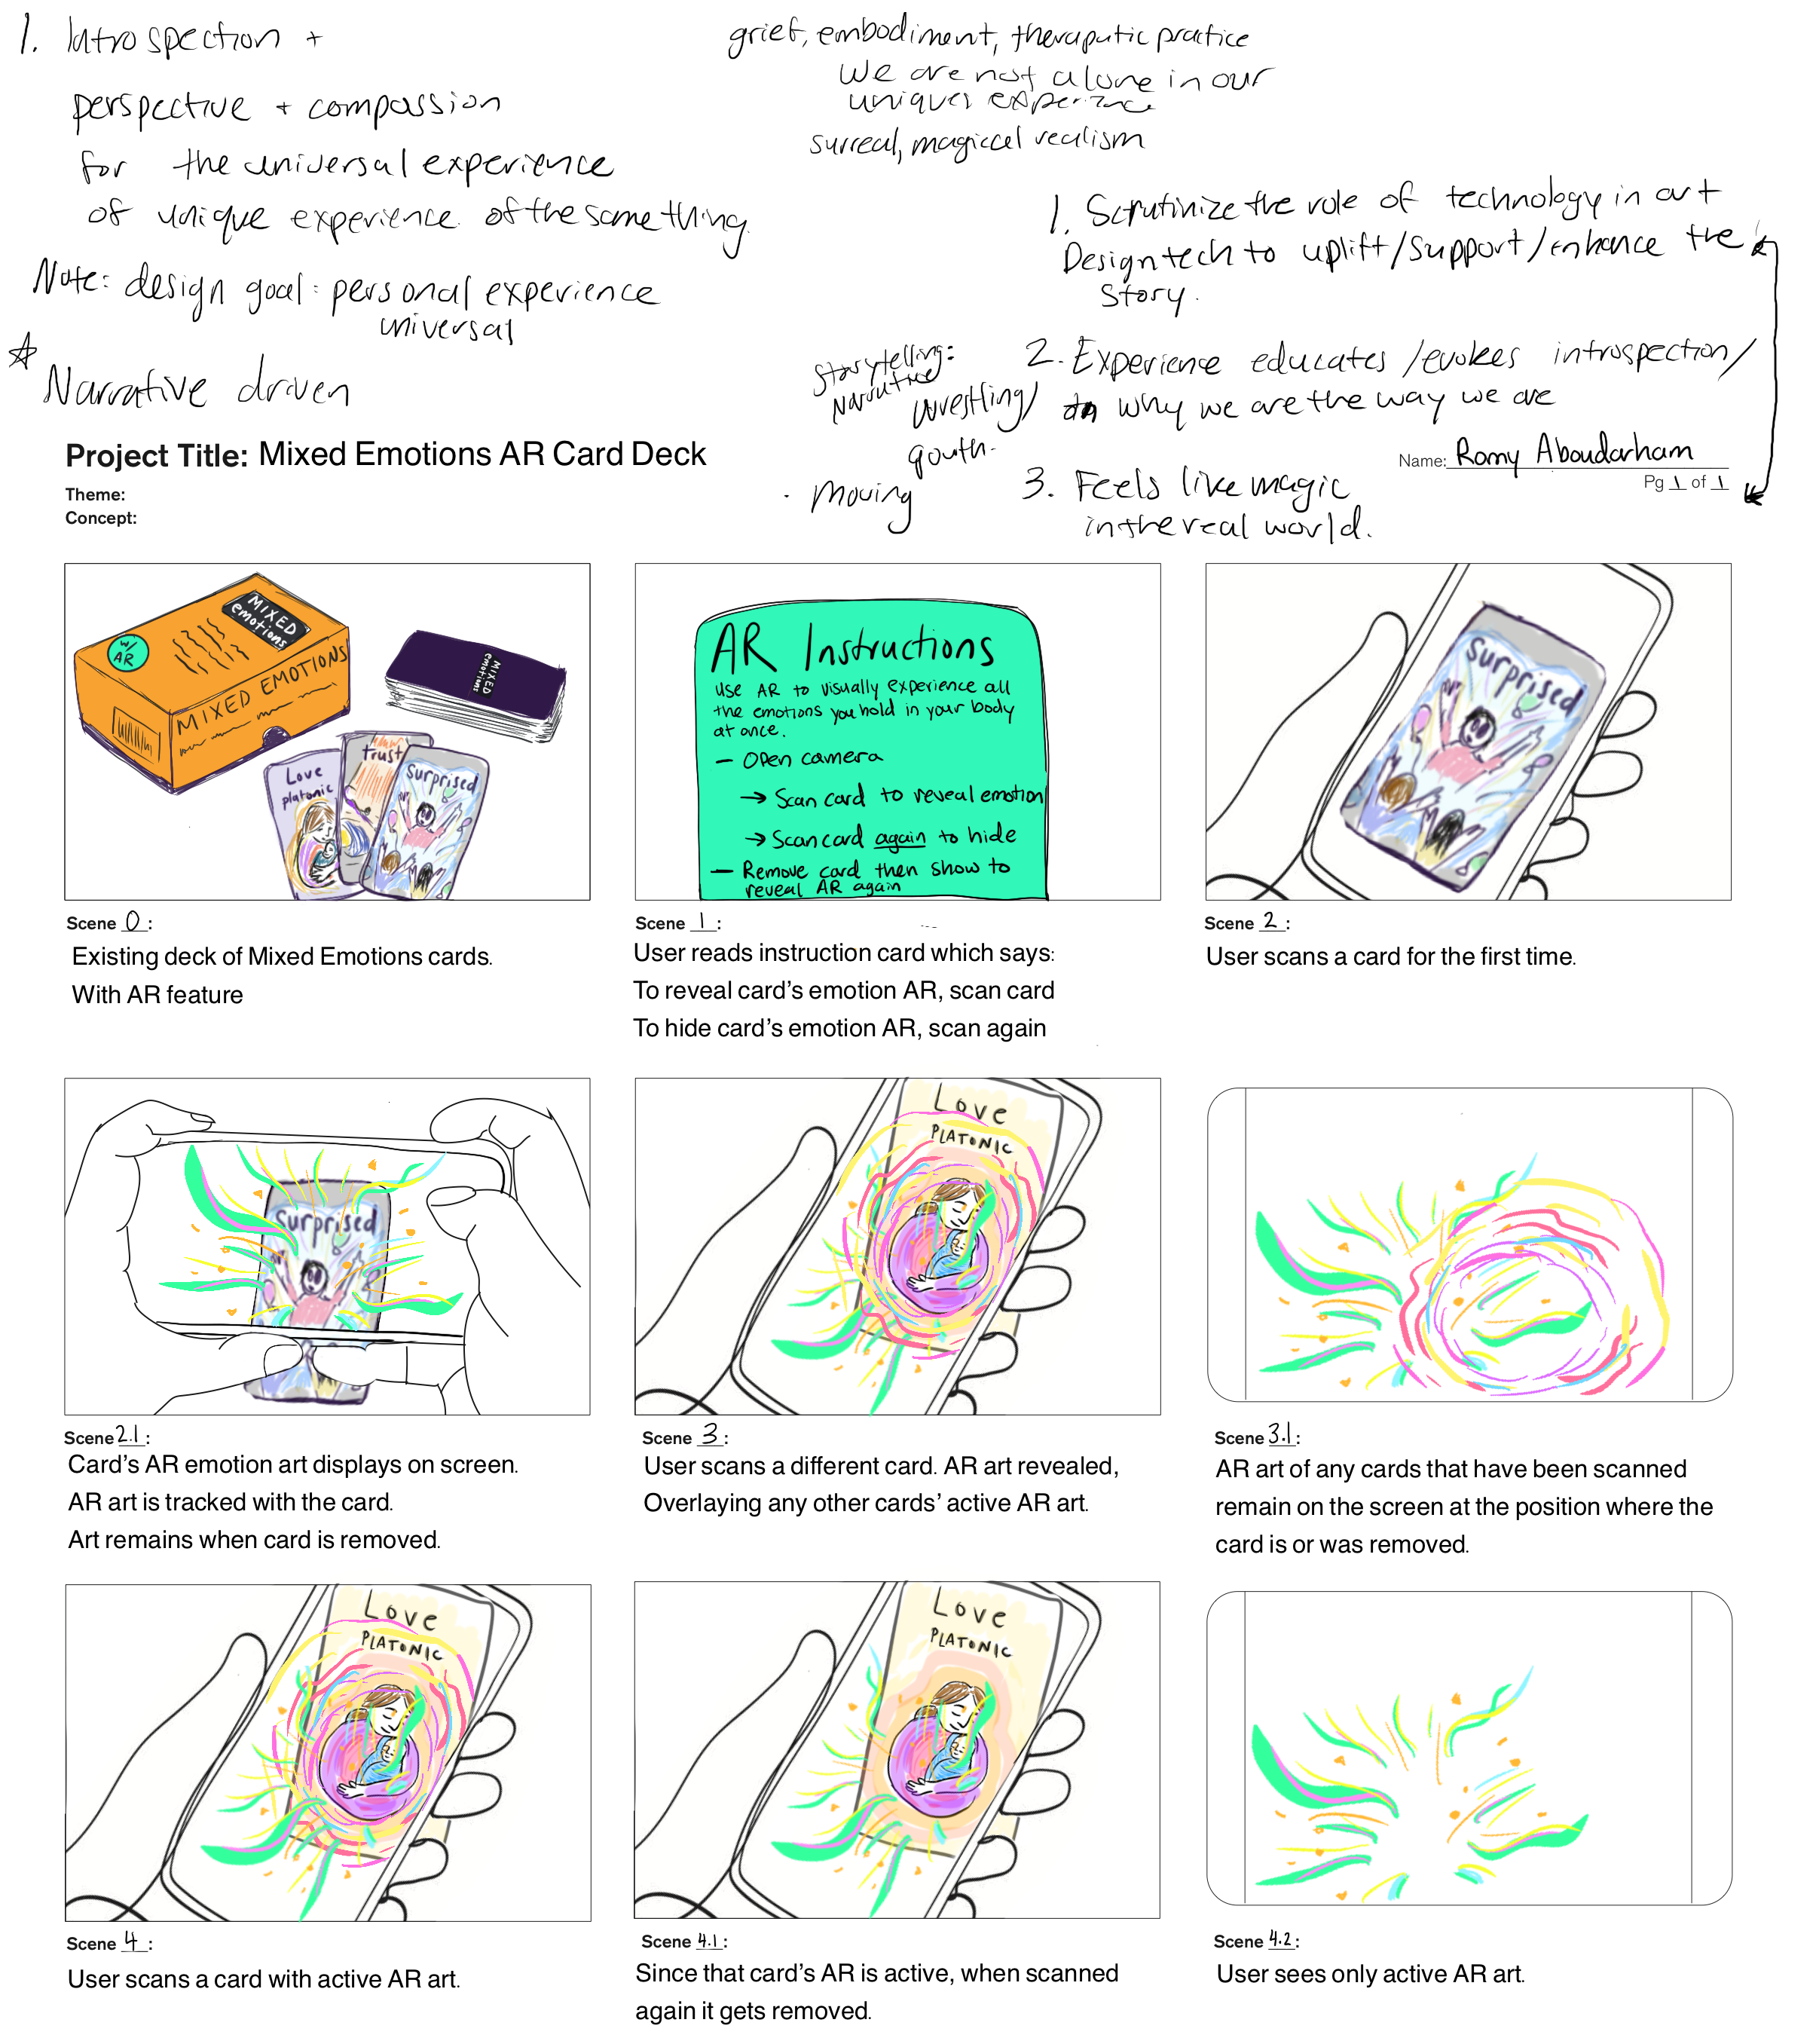 1. Introspection +
perspective + compassion
for the universal experience
of unique experience of the same thing.
Note: design goal: personal experience
universal
Narrative driven
grief, embodiment, theraputic practice
We are not alone in our
unique experience
surreal, magical realism
1. Scrutinize the role of technology in art
Design tech to uplift/support/enhance the
Story.
Storytelling:
Narrative
wrestling/
youth.
· Moving
2. Experience educates/evokes introspection/
why we are the way we are
3. Feels like magic
in the real world.
Project Title: Mixed Emotions AR Card Deck
Theme:
Concept:
Name: Romy Aboudarham
Pg 1 of 1
MIXED
emotions
W/
AR
MIXED EMOTIONS
MIXED
emotions
Love
platonic
Trust
Surprised
Scene 0:
Existing deck of Mixed Emotions cards.
With AR feature
AR Instructions
Use AR to visually experience all
the emotions you hold in your body
at once.
— Open camera
→ Scan card to reveal emotion
→ Scan card again to hide
— Remove card then show to
reveal AR again
Scene 1:
User reads instruction card which says:
To reveal card's emotion AR, scan card
To hide card's emotion AR, scan again
Surprised
Scene 2:
User scans a card for the first time.
Surprised
Scene 2.1:
Card's AR emotion art displays on screen.
AR art is tracked with the card.
Art remains when card is removed.
LOVE
PLATONIC
Scene 3:
User scans a different card. AR art revealed,
Overlaying any other cards' active AR art.
Scene 3.1:
AR art of any cards that have been scanned
remain on the screen at the position where the
card is or was removed.
LOVE
PLATONIC
Scene 4:
User scans a card with active AR art.
LOVE
PLATONIC
Scene 4.1:
Since that card's AR is active, when scanned
again it gets removed.
Scene 4.2:
User sees only active AR art.